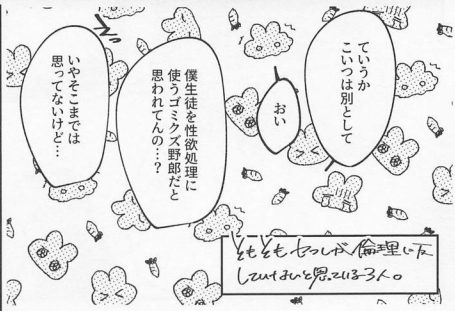 ていうか
こいつは別として
おい
僕生徒を性欲処理に
使うゴミクズ野郎だと
思われてんの…?
いやそこまでは
思ってないけど…
そもそもセフレが倫理に反
していけないと思っている3人。